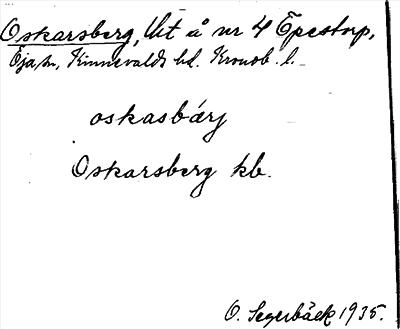 Oskarsberg, lht å nr 4 Öpestorp,
Öja sn, Kinnevalds hd. Kronob. l.
oskasbärj
Oskarsberg kb.
O. Segerbäck 1935.